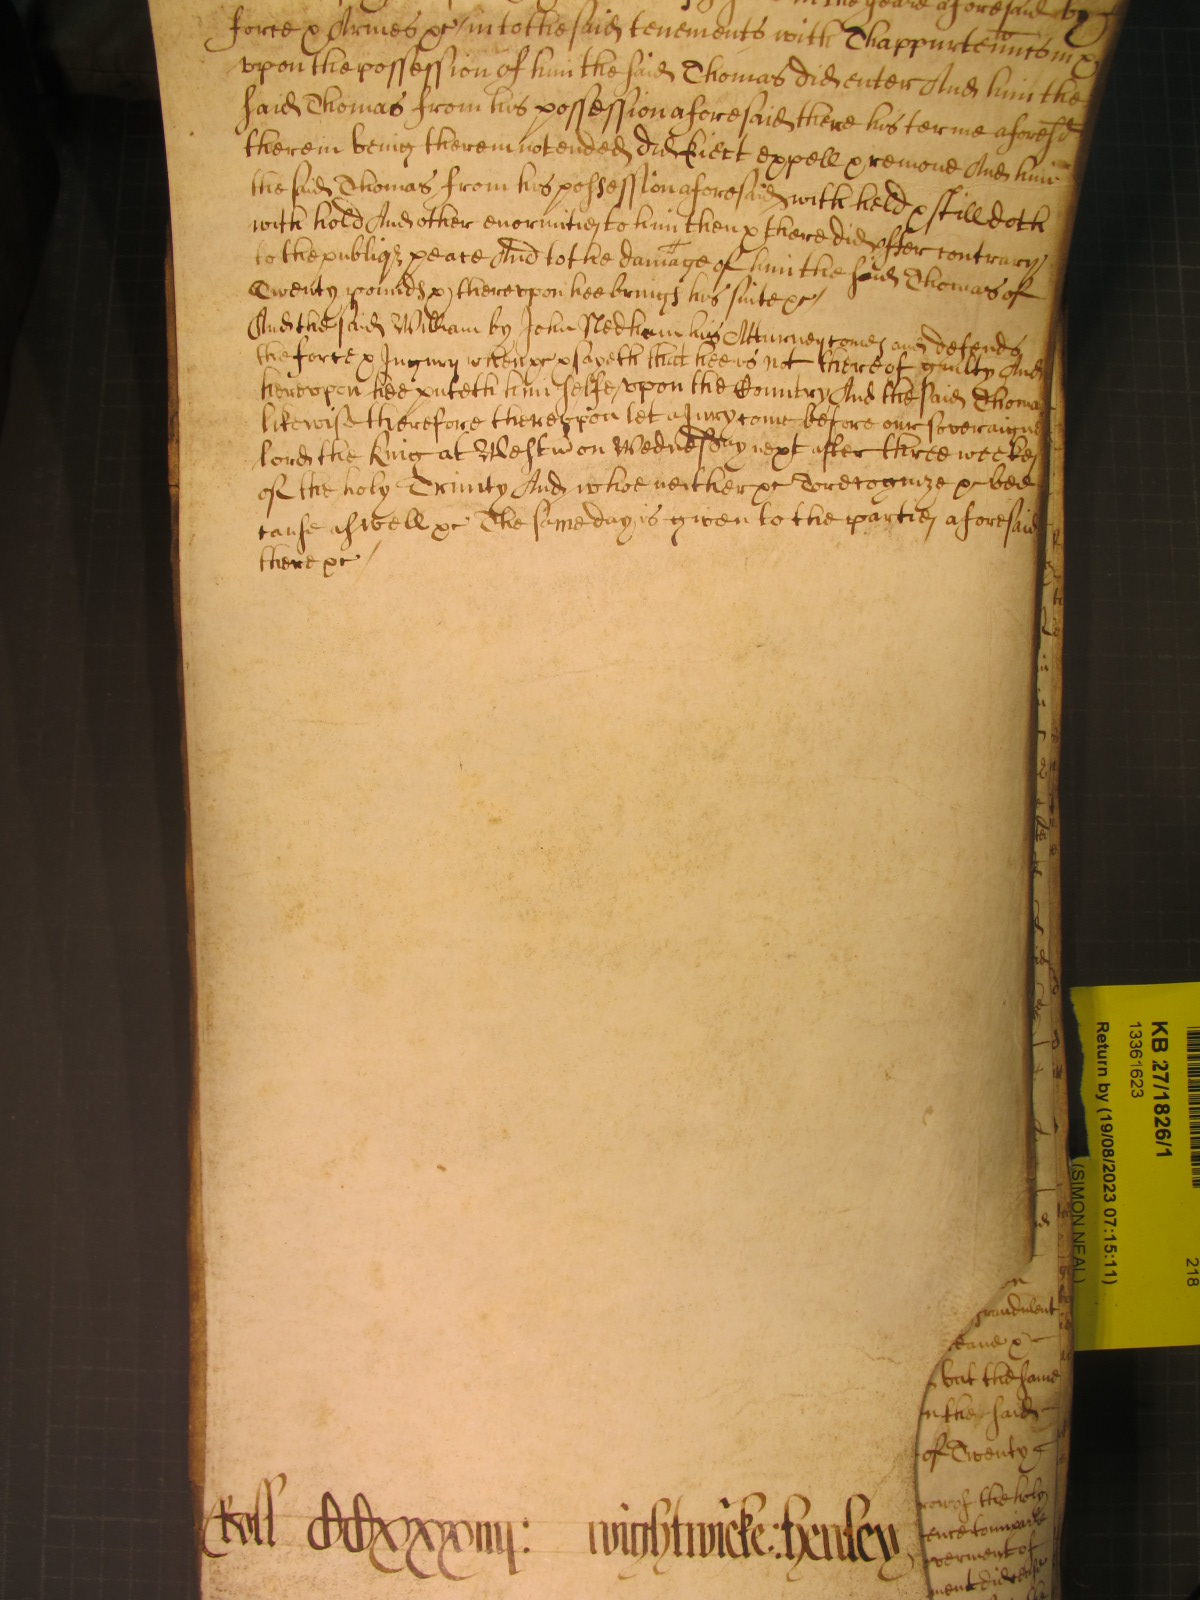 in the yeare aforesaid by
force & Armes &c into the said tenements with Thappurtennce in &
vpon the possession of him the said Thomas did enter And him the
said Thomas from his possession aforesaid there his terme aforesd
therein being therein not ended did Eiect expell & remoue And him
the said Thomas from his possession aforesaid with held & still doth
with hold And other enormities to him then & there did offer contrary
to the publiq; peace And to the damage of him the said Thomas of
Twenty pounds & therevpon hee brings his suite &c/
And the said William by John Nedham his Atturney comes and defends
the force & Iniury when &c & sayeth that hee is not thereof guilty And
herevpon hee puteth him selfe vpon the Country And the said Thomas
likewise therefore therevpon let a Jury come before our soveraigne
lord the King at Westm on Wednesday next after three weekes
of the holy Trinity And whoe neither &c To recognize &c bee
cause aswell &c The same day is given to the parties aforesaid
there &c/
fraudulent
leaue &
but the same
n the said
of Twenty
row of the holy
verment of
Roll DCCxxxxiiij: wightwicke: henley
KB 27/1826/1
13361623
Return by (19/08/2023 07:15:11)
(SIMON NEAL)
218